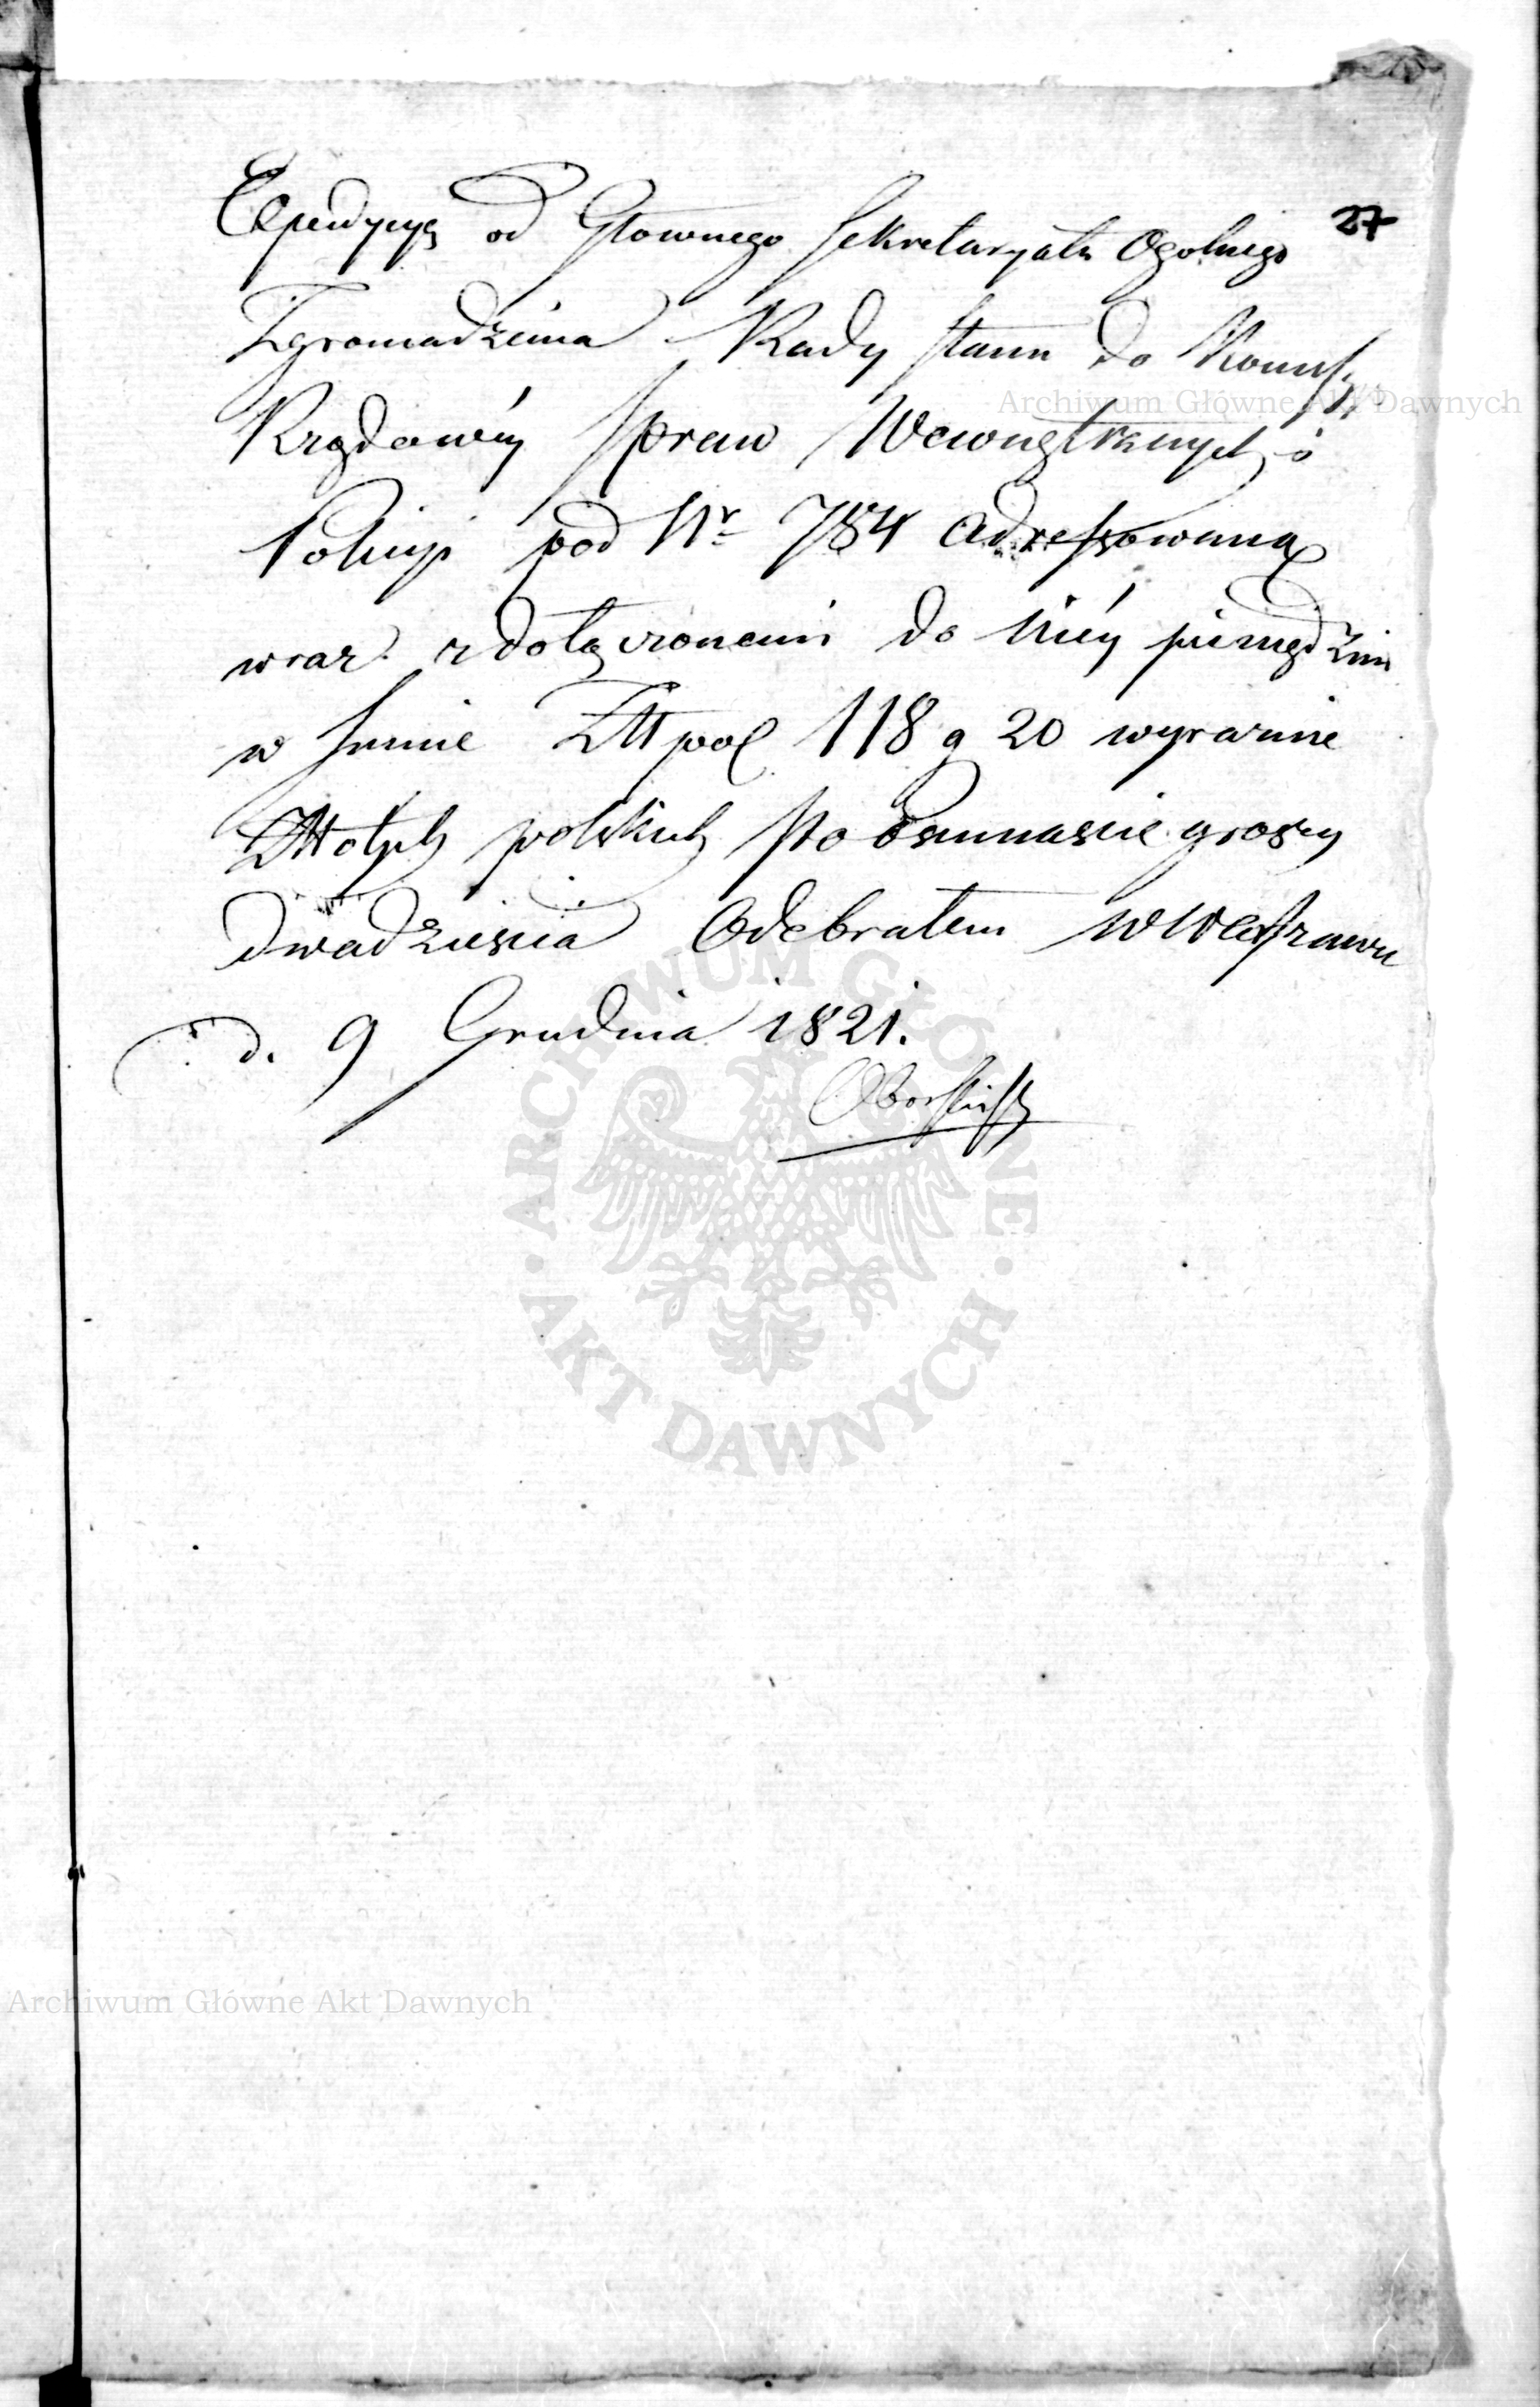 27
Expedycyą od Głownego Sekretaryatu Ogolnego
Zgromadzenia Rady Stanu do Kommissyi
Rządowéy Spraw Wewnętrznych i
Policyi pod Nr 784 adressowaną
wraz z dołączonemi do niéy pieniędzmi
w summie Złł pol 118 g 20 wyraznie
Złłotych polskich Sto osmnascie groszy
dwadziescia Odebrałem w Warszawie
d. 9 Grudnia 1821.
Archiwum Główne Akt Dawnych
ARCHIWUM GŁÓWNE
· AKT DAWNYCH ·
Archiwum Główne Akt Dawnych